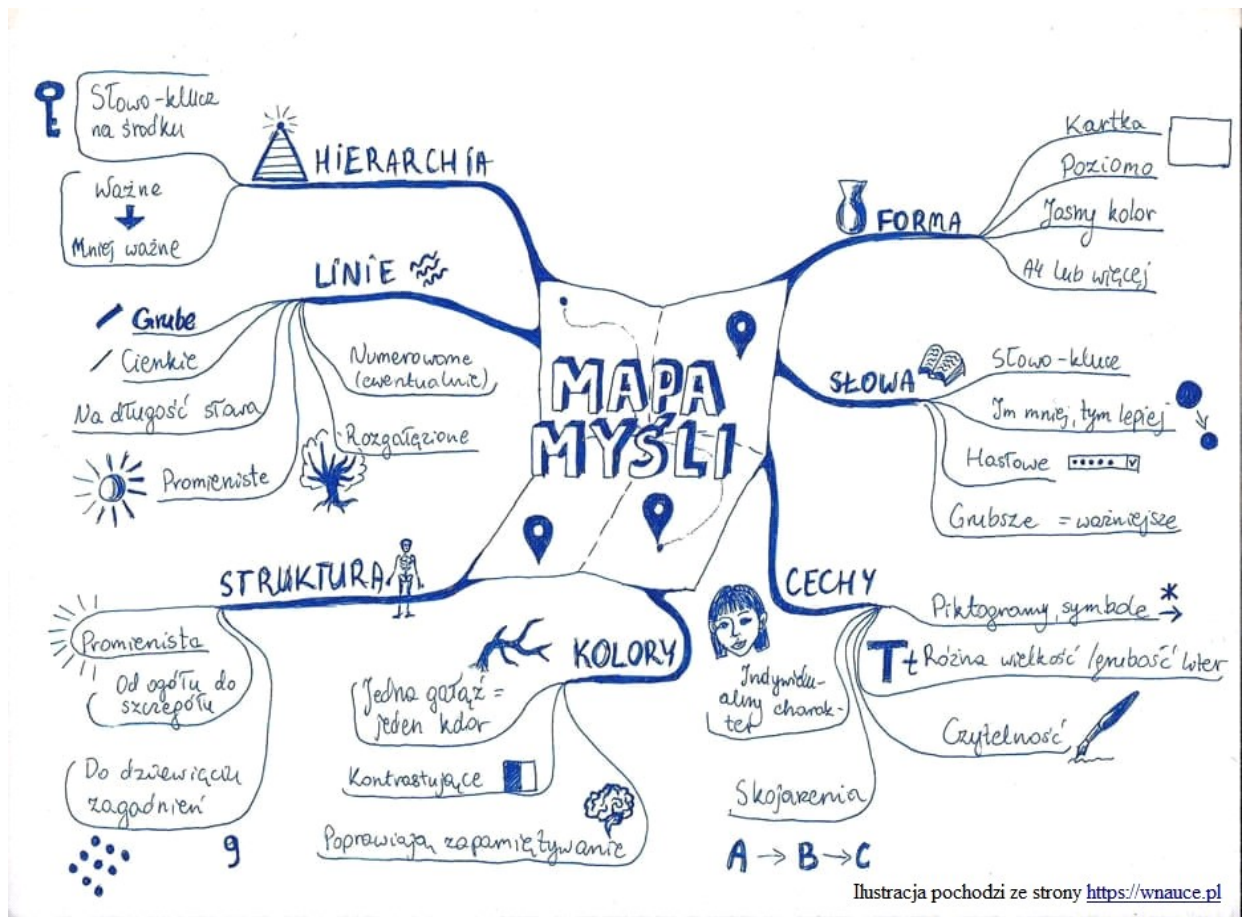 MAPA
MYŚLI
HIERARCHIA
Słowo-klucz
na środku
Ważne
Mniej ważne
LINIE
Grube
Cienkie
Na długość słowa
Promieniste
Rozgałęzione
Numerowane
(ewentualnie)
STRUKTURA
Promienista
Od ogółu do
szczegółu
Do dziewięciu
zagadnień
9
KOLORY
Jedna gałąź =
jeden kolor
Kontrastujące
Poprawiają zapamiętywanie
FORMA
Kartka
Poziomo
Jasny kolor
A4 lub więcej
SŁOWA
Słowo-klucz
Im mniej, tym lepiej
Hasłowe
Grubsze = ważniejsze
CECHY
Piktogramy, symbole * →
Tt Różna wielkość/grubość liter
Czytelność
Indywidu-
alny charak-
ter
Skojarzenia
A → B → C
Ilustracja pochodzi ze strony https://wnauce.pl